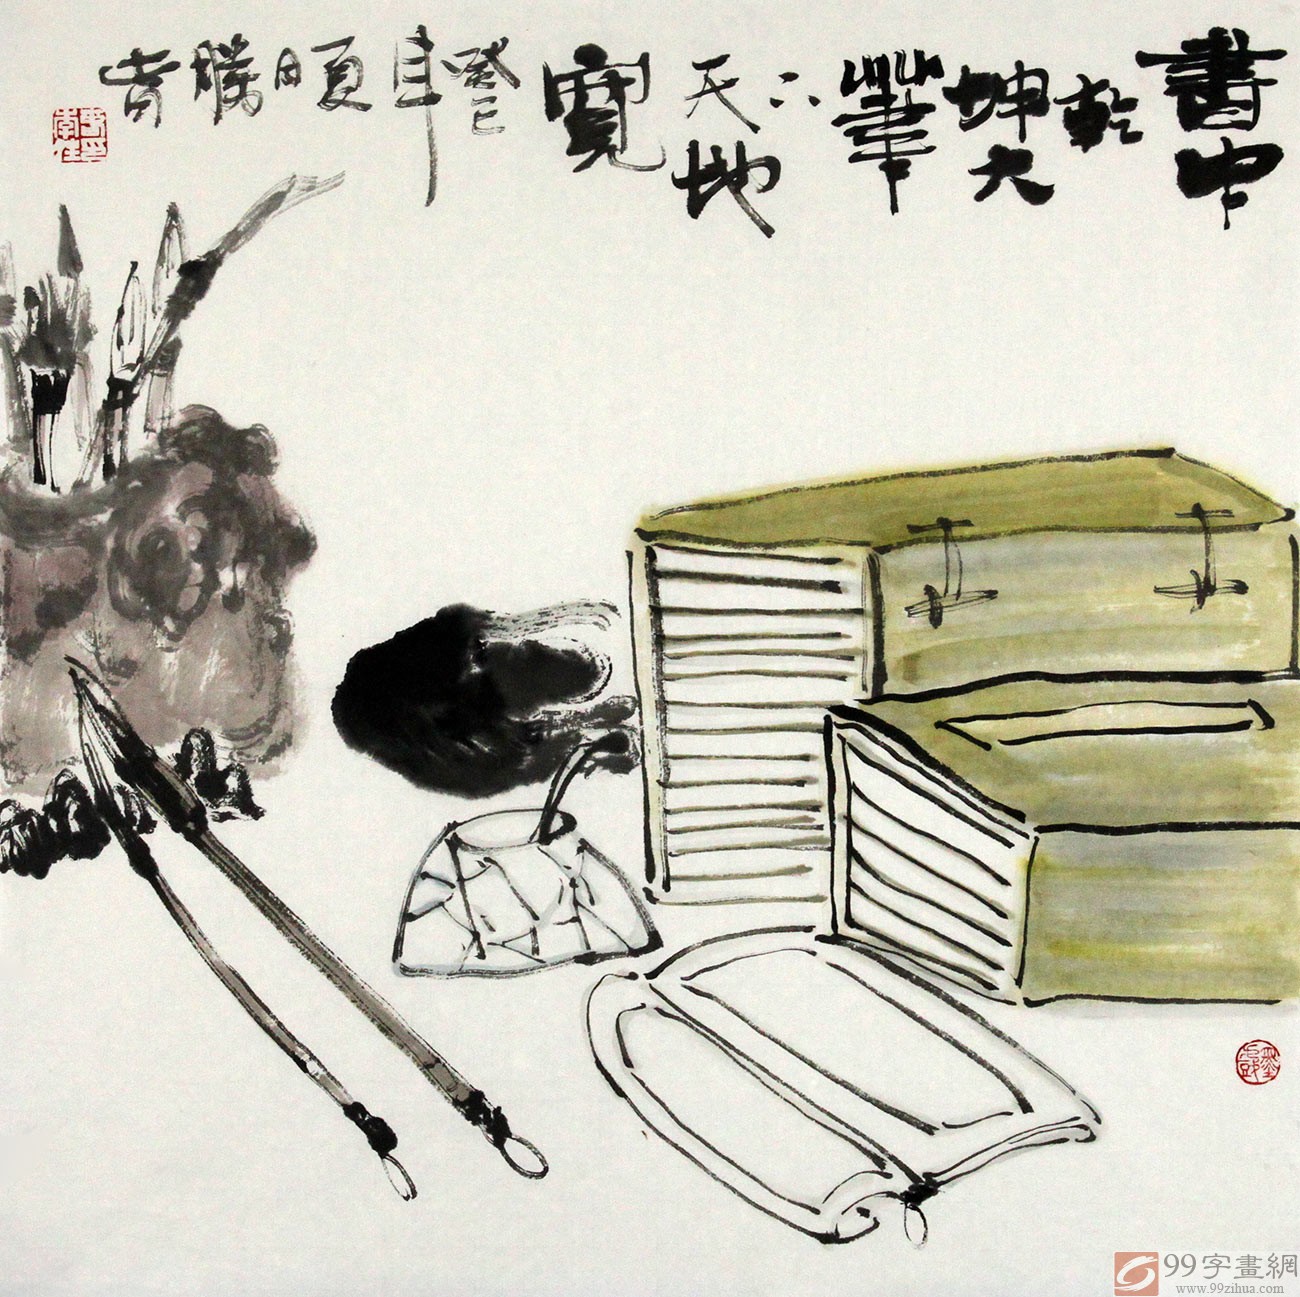 書中
乾
坤大
筆
下
天地
寬
癸巳
年
夏
日
99字畫網
www.99zihua.com